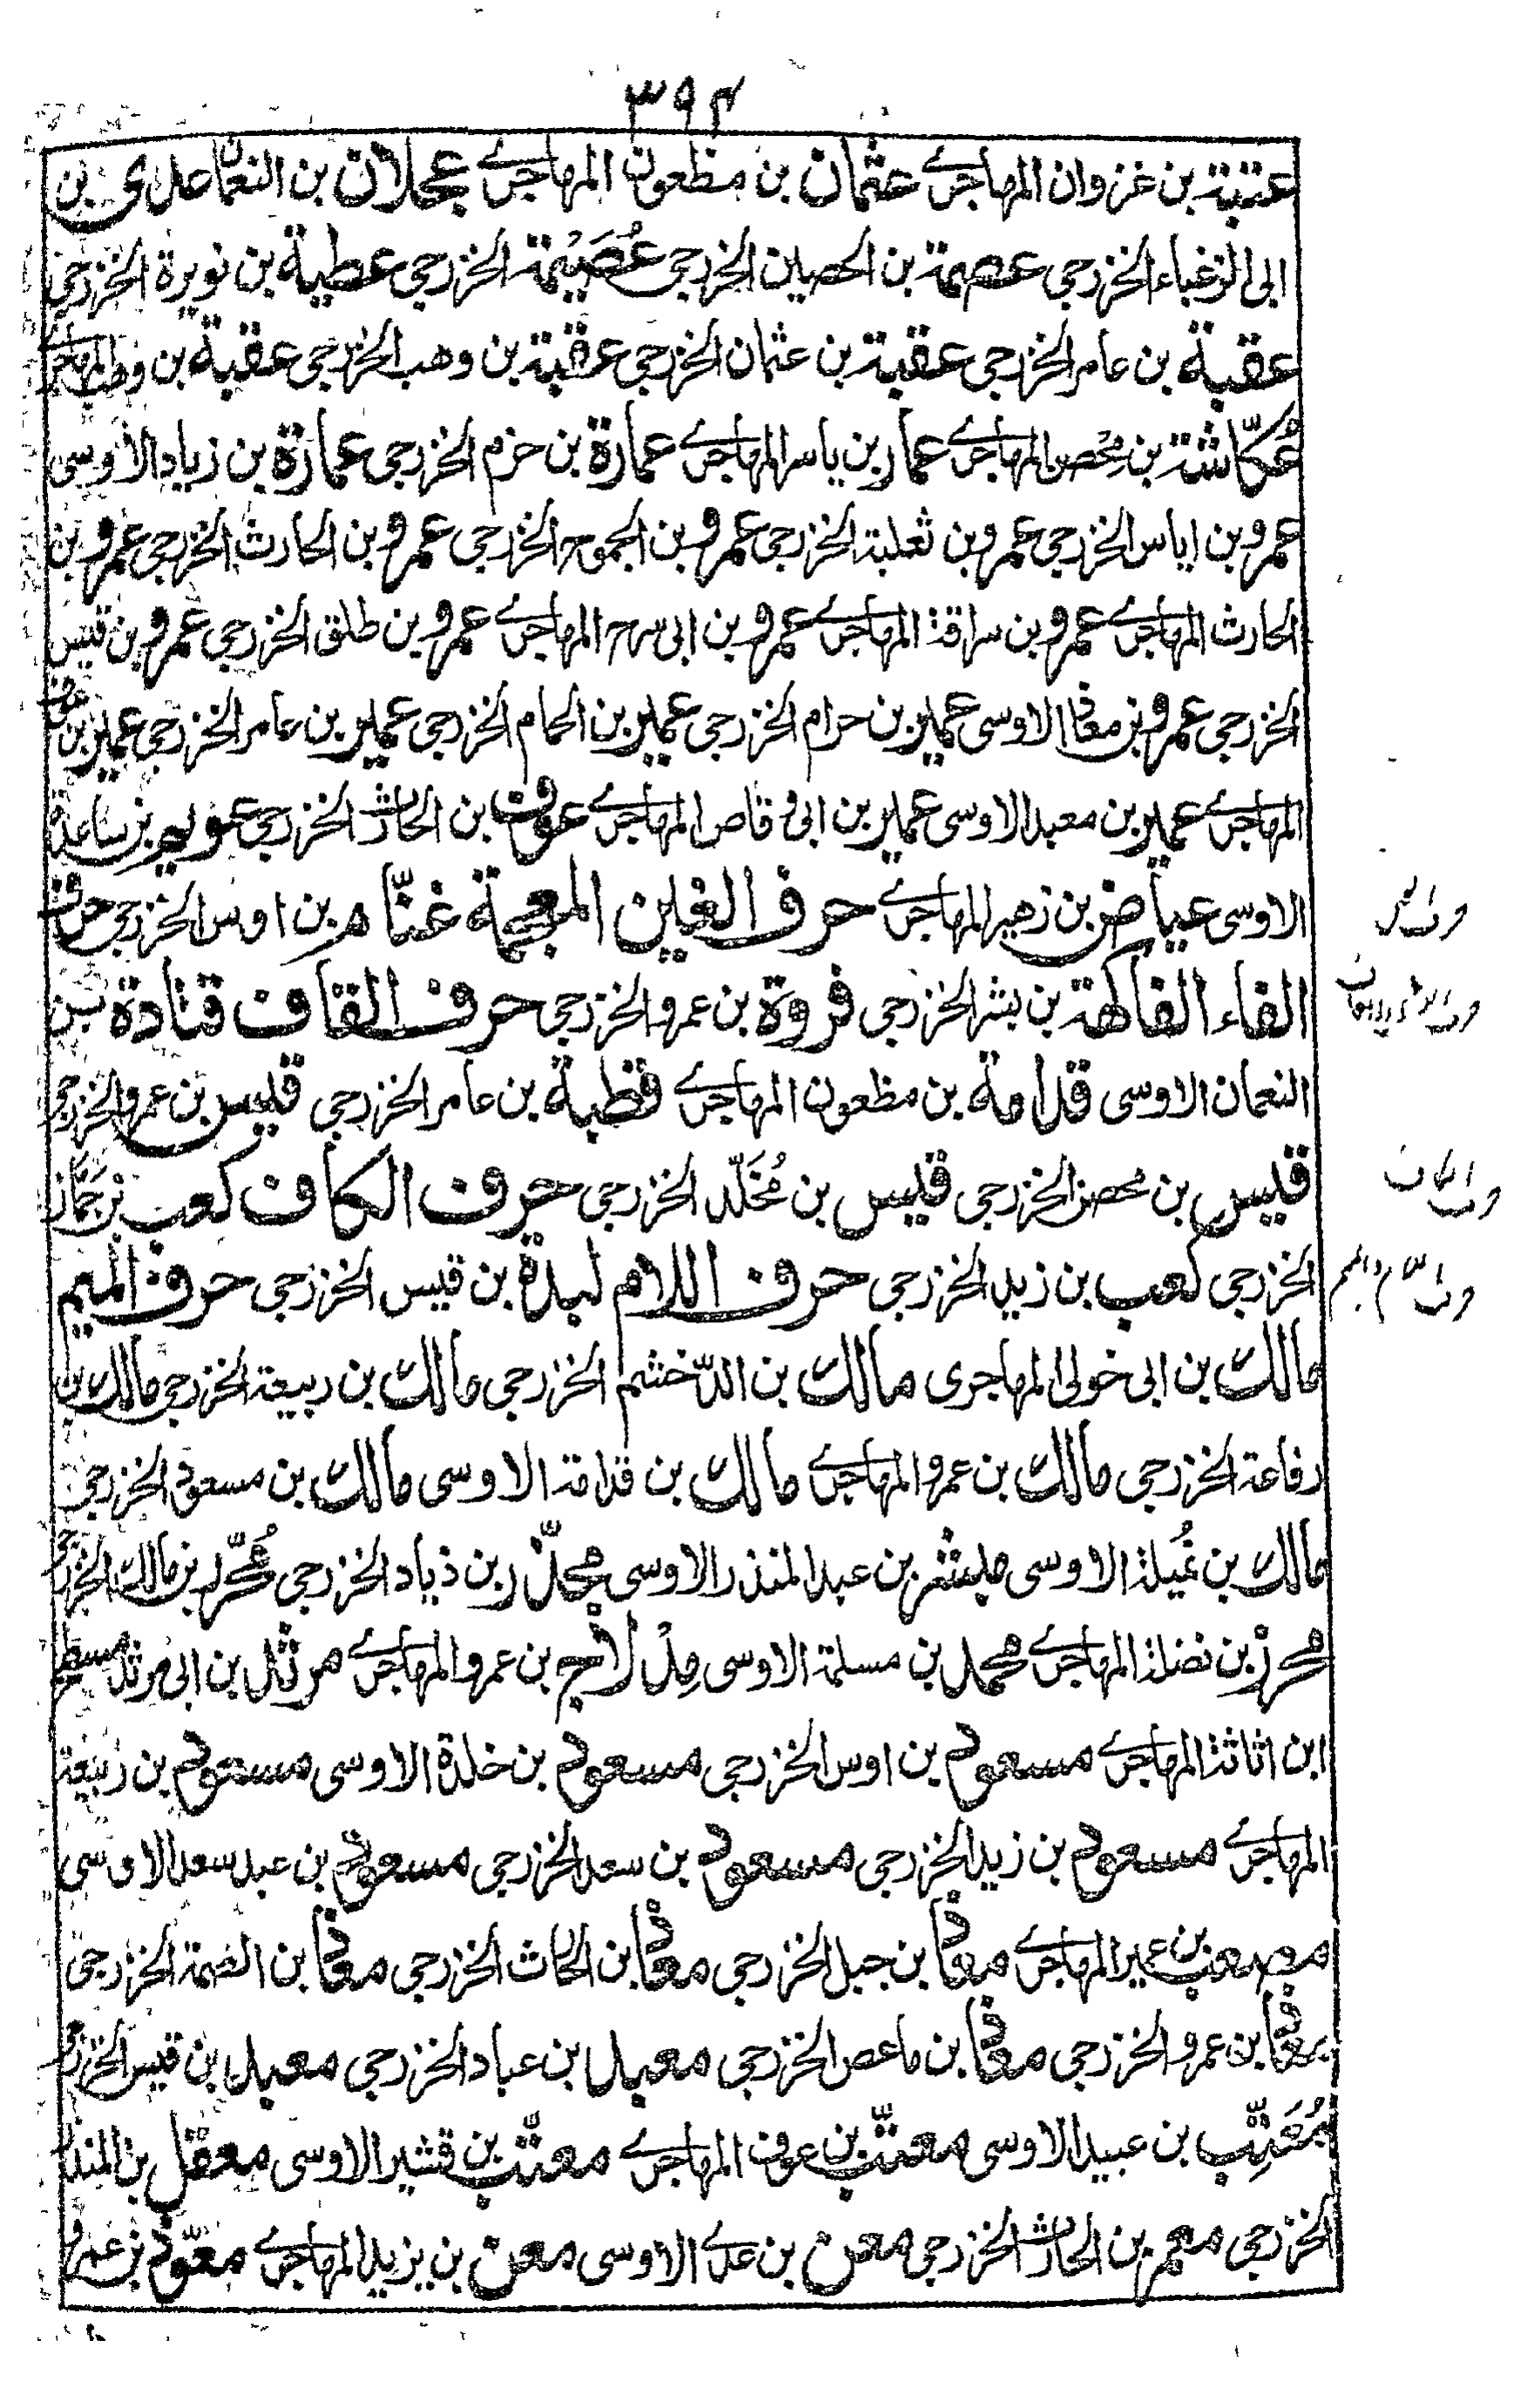 ٣٩٤
عتبة بن غزوان المهاجرے عثمان بن مظعون المهاجرے عجلان بن النعمان عدى بن
ابى الزغباء الخزرجى عصمة بن الحصين الخزرجى عُصَيْمة الخزرجى عطية بن نويرة الخزرجى
عقبة بن عامر الخزرجى عقبة بن عثمان الخزرجى عقبة بن وهب الخزرجى عقبة بن وهب المهاجرے
عُكّاشة بن مِحْصن المهاجرے عمار بن ياسر المهاجرے عمارة بن حزم الخزرجى عمارة بن زياد الاوسى
عمرو بن اياس الخزرجى عمرو بن ثعلبة الخزرجى عمرو بن الجموح الخزرجى عمرو بن الحارث الخزرجى عمرو بن
الحارث المهاجرے عمرو بن سراقة المهاجرے عمرو بن ابى سرح المهاجرے عمرو بن طلق الخزرجى عمرو بن قيس
الخزرجى عمرو بن معاذ الاوسى عمير بن حرام الخزرجى عمير بن الحمام الخزرجى عمير بن عامر الخزرجى عمير بن عوف
المهاجرے عمير بن معبد الاوسى عمير بن ابى وقاص المهاجرے عوف بن الحارث الخزرجى عويم بن ساعدة
الاوسى عياض بن زهير المهاجرے حرف الغين المعجمة غنّام بن اوس الخزرجى حرف
الفاء الفاكهة بن بشر الخزرجى فروة بن عمرو الخزرجى حرف القاف قتادة بن
النعمان الاوسى قدامة بن مظعون المهاجرے قطبة بن عامر الخزرجى قيس بن عمرو الخزرجى
قيس بن محصن الخزرجى قيس بن مُخَلّد الخزرجى حرف الكاف كعب بن جَمّاز
الخزرجى كعب بن زيد الخزرجى حرف اللام لبدة بن قيس الخزرجى حرف الميم
مالك بن ابى خولى المهاجرى مالك بن الدّخشم الخزرجى مالك بن ربيعة الخزرجى مالك بن
رفاعة الخزرجى مالك بن عمرو المهاجرے مالك بن قدامة الاوسى مالك بن مسعود الخزرجى
مالك بن نُميلة الاوسى مبشر بن عبد المنذر الاوسى مجذّر بن ذياد الخزرجى مُحرّز بن مالك الخزرجى
محرز بن نضلة المهاجرے محمد بن مسلمة الاوسى مِدْلاج بن عمرو المهاجرے مرثد بن ابى مرثد مسطح
ابن اثاثة المهاجرے مسعود بن اوس الخزرجى مسعود بن خلدة الاوسى مسعود بن ربيعة
المهاجرے مسعود بن زيد الخزرجى مسعود بن سعد الخزرجى مسعود بن عبد سعد الاوسى
مصعب بن عمير المهاجرے معاذ بن جبل الخزرجى معاذ بن الحارث الخزرجى معاذ بن الصمة الخزرجى
معاذ بن عمرو الخزرجى معاذ بن ماعص الخزرجى معبد بن عباد الخزرجى معبد بن قيس الخزرجى
مُعَتِّب بن عبيد الاوسى معتّب بن عوف المهاجرے معتّب بن قشير الاوسى معقل بن المنذر
الخزرجى معمر بن الحارث الخزرجى معن بن عدے الاوسى معن بن يزيد المهاجرے معوّذ بن عمرو